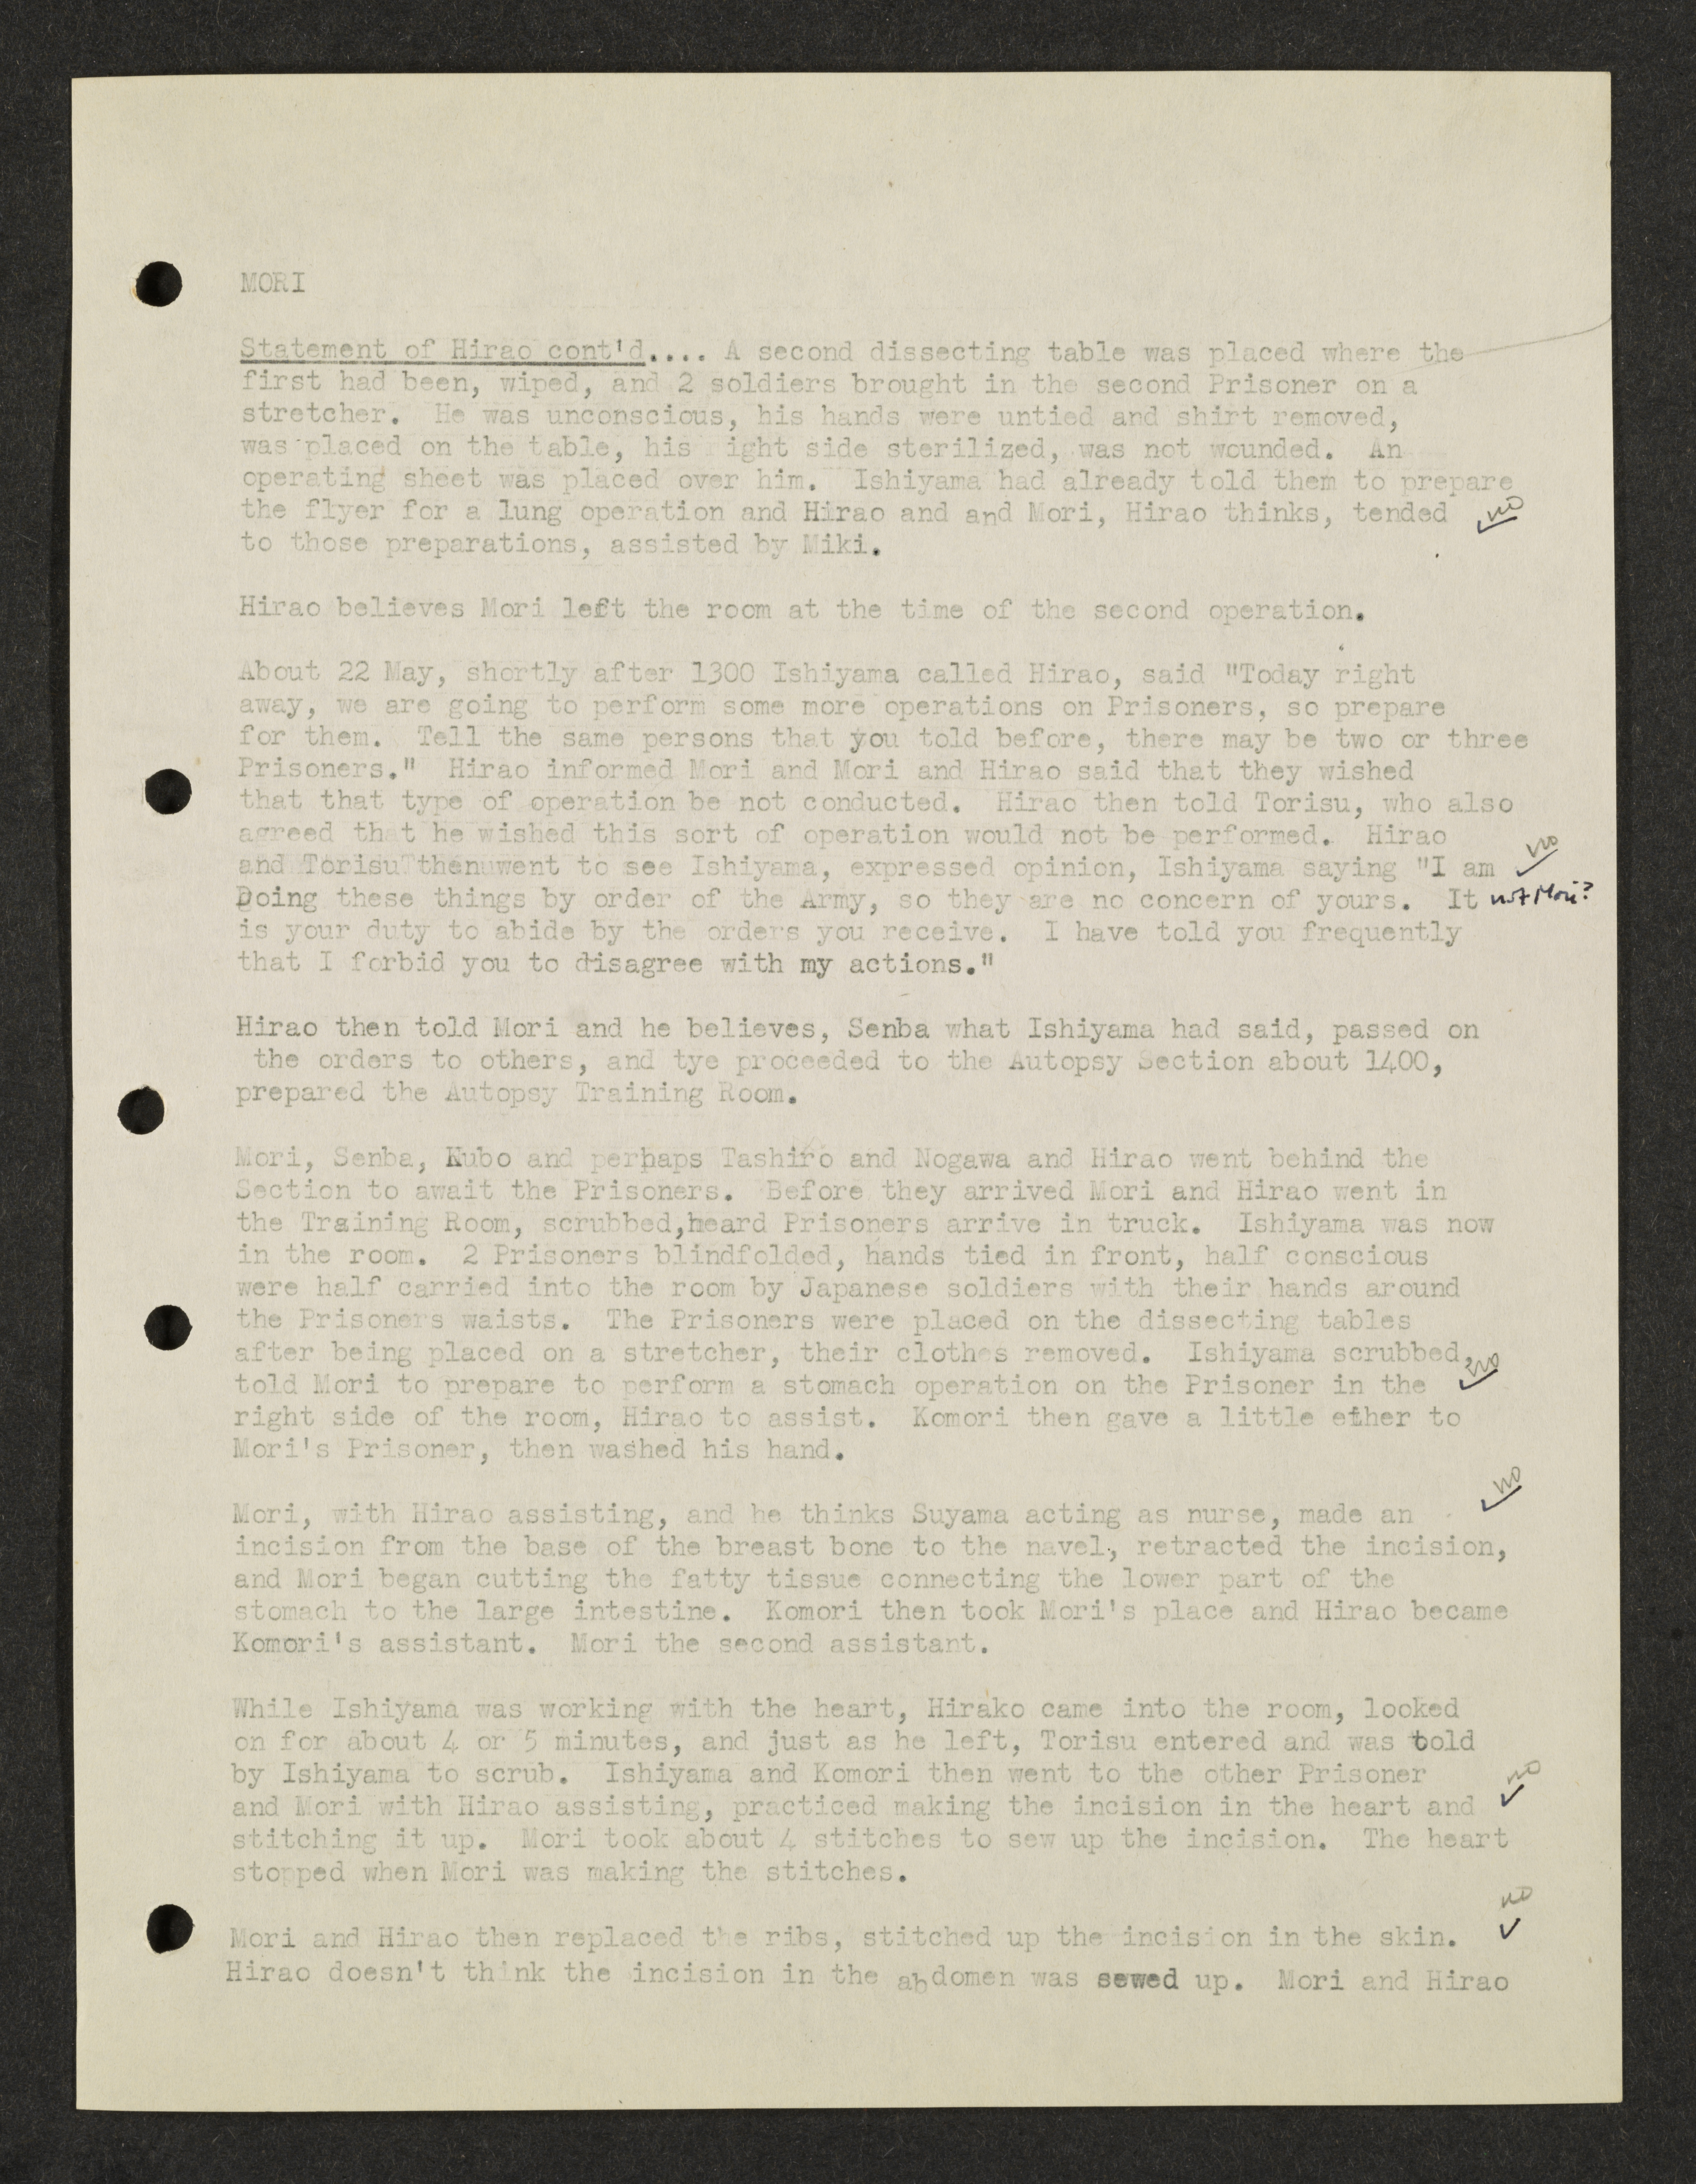 MORI
Statement of Hirao cont'd.... A second dissecting table was placed where the
first had been, wiped, and 2 soldiers brought in the second Prisoner on a
stretcher. He was unconscious, his hands were untied and shirt removed,
was placed on the table, his right side sterilized, was not wounded. An
operating sheet was placed over him. Ishiyama had already told them to prepare
the flyer for a lung operation and Hirao and and Mori, Hirao thinks, tended no
to those preparations, assisted by Miki.
Hirao believes Mori left the room at the time of the second operation.
About 22 May, shortly after 1300 Ishiyama called Hirao, said "Today right
away, we are going to perform some more operations on Prisoners, so prepare
for them. Tell the same persons that you told before, there may be two or three
Prisoners." Hirao informed Mori and Mori and Hirao said that they wished
that that type of operation be not conducted. Hirao then told Torisu, who also
agreed that he wished this sort of operation would not be performed. Hirao
and Torisu then went to see Ishiyama, expressed opinion, Ishiyama saying "I am no
Doing these things by order of the Army, so they are no concern of yours. It not Mori?
is your duty to abide by the orders you receive. I have told you frequently
that I forbid you to disagree with my actions."
Hirao then told Mori and he believes, Senba what Ishiyama had said, passed on
the orders to others, and tye proceeded to the Autopsy Section about 1400,
prepared the Autopsy Training Room.
Mori, Senba, Kubo and perhaps Tashiro and Nogawa and Hirao went behind the
Section to await the Prisoners. Before they arrived Mori and Hirao went in
the Training Room, scrubbed,heard Prisoners arrive in truck. Ishiyama was now
in the room. 2 Prisoners blindfolded, hands tied in front, half conscious
were half carried into the room by Japanese soldiers with their hands around
the Prisoners waists. The Prisoners were placed on the dissecting tables
after being placed on a stretcher, their clothes removed. Ishiyama scrubbed, no
told Mori to prepare to perform a stomach operation on the Prisoner in the
right side of the room, Hirao to assist. Komori then gave a little ether to
Mori's Prisoner, then washed his hand.
no
Mori, with Hirao assisting, and he thinks Suyama acting as nurse, made an
incision from the base of the breast bone to the navel, retracted the incision,
and Mori began cutting the fatty tissue connecting the lower part of the
stomach to the large intestine. Komori then took Mori's place and Hirao became
Komori's assistant. Mori the second assistant.
While Ishiyama was working with the heart, Hirako came into the room, looked
on for about 4 or 5 minutes, and just as he left, Torisu entered and was told
by Ishiyama to scrub. Ishiyama and Komori then went to the other Prisoner no
and Mori with Hirao assisting, practiced making the incision in the heart and
stitching it up. Mori took about 4 stitches to sew up the incision. The heart
stopped when Mori was making the stitches.
no
Mori and Hirao then replaced the ribs, stitched up the incision in the skin.
Hirao doesn't think the incision in the abdomen was sewed up. Mori and Hirao